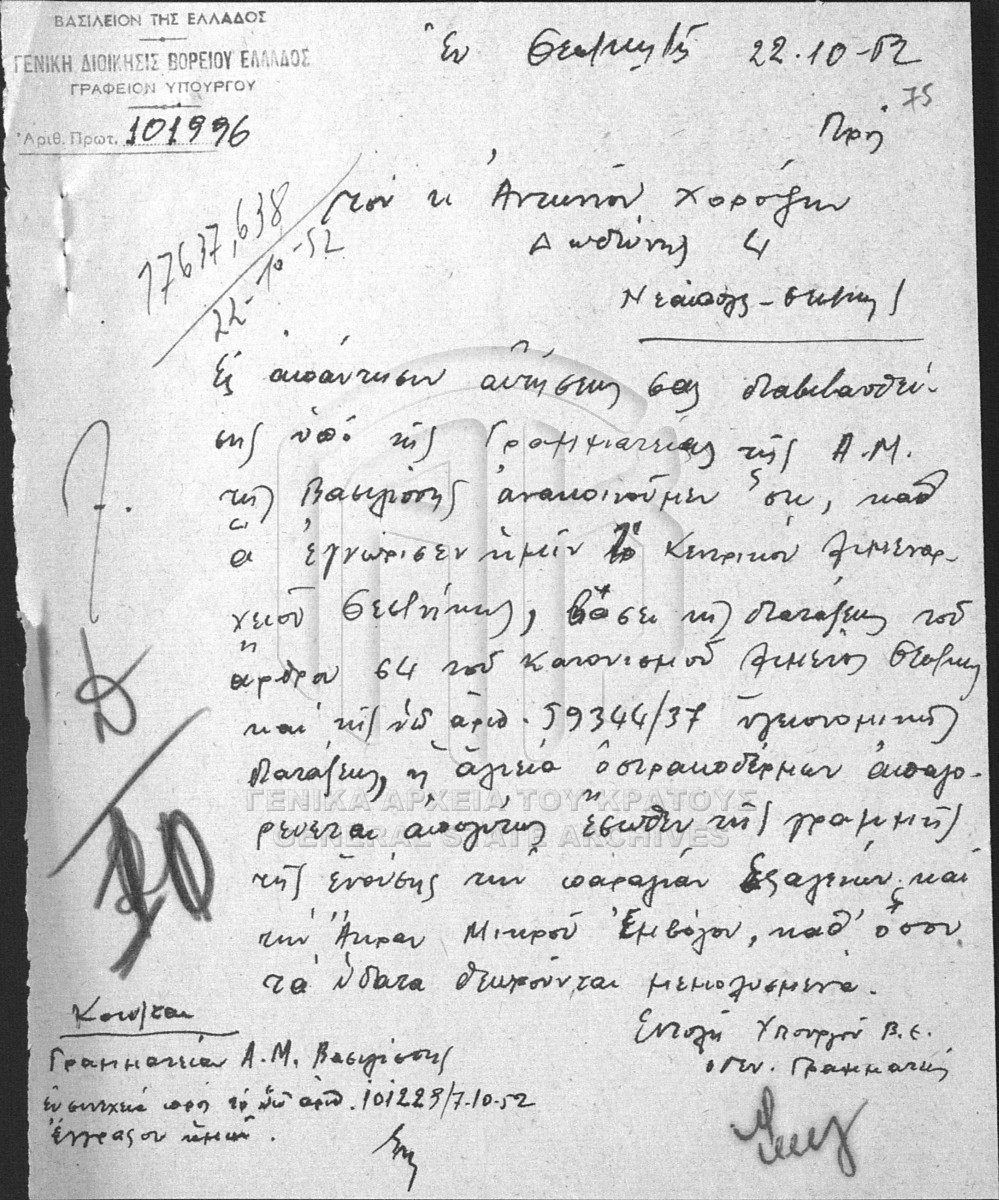 ΒΑΣΙΛΕΙΟΝ ΤΗΣ ΕΛΛΑΔΟΣ
ΓΕΝΙΚΗ ΔΙΟΙΚΗΣΙΣ ΒΟΡΕΙΟΥ ΕΛΛΑΔΟΣ
ΓΡΑΦΕΙΟΝ ΥΠΟΥΡΓΟΥ
Ἀριθ. Πρωτ. 101996
Ἐν Θεσ/νίκῃ 22-10-52
75
Πρὸς
τὸν κ Ἀντώνιον
Δωδώνης 4
Νεάπολις -
17637,638
22-10-52
Εἰς ἀπάντησιν αἰτήσεως σας διαβιβασθεί-
σης ὑπὸ τῆς Γραμματείας τῆς Α.Μ.
τῆς Βασιλίσσης ἀνακοινοῦμεν ὅτι, καθ'
ἃ ἐγνώρισεν ἡμῖν τὸ Κεντρικὸν Λιμεναρ-
χεῖον Θεσ/νίκης, βάσει τῆς διατάξεως τοῦ
ἄρθρου 64 τοῦ Κανονισμοῦ Λιμένος Θεσ/νίκης
καὶ τῆς ὑπ' ἀριθ. 59344/37 ὑγειονομικῆς
διατάξεως, ἡ ἁλιεία ὀστρακοδέρμων ἀπαγο-
ρεύεται ἀπολύτως ἔσωθεν τῆς γραμμῆς
ΓΕΝΙΚΑ ΑΡΧΕΙΑ ΤΟΥ ΚΡΑΤΟΥΣ
GENERAL STATE ARCHIVES
τῆς ἑνούσης τὴν παραλίαν καὶ
τὴν Ἄκραν Μικροῦ Ἐμβόλου, καθ' ὅσον
τὰ ὕδατα θεωροῦνται μεμολυσμένα.
Ἐντολῇ Ὑπουργοῦ Β.Ε.
ὁ Γεν. Γραμματεὺς
Κοιν/ται
Γραμματείαν Α.Μ. Βασιλίσσης
ἐν συνεχείᾳ πρὸς τὸ ὑπ' ἀριθ. 101229/7-10-52
ἔγγραφον ἡμῶν.